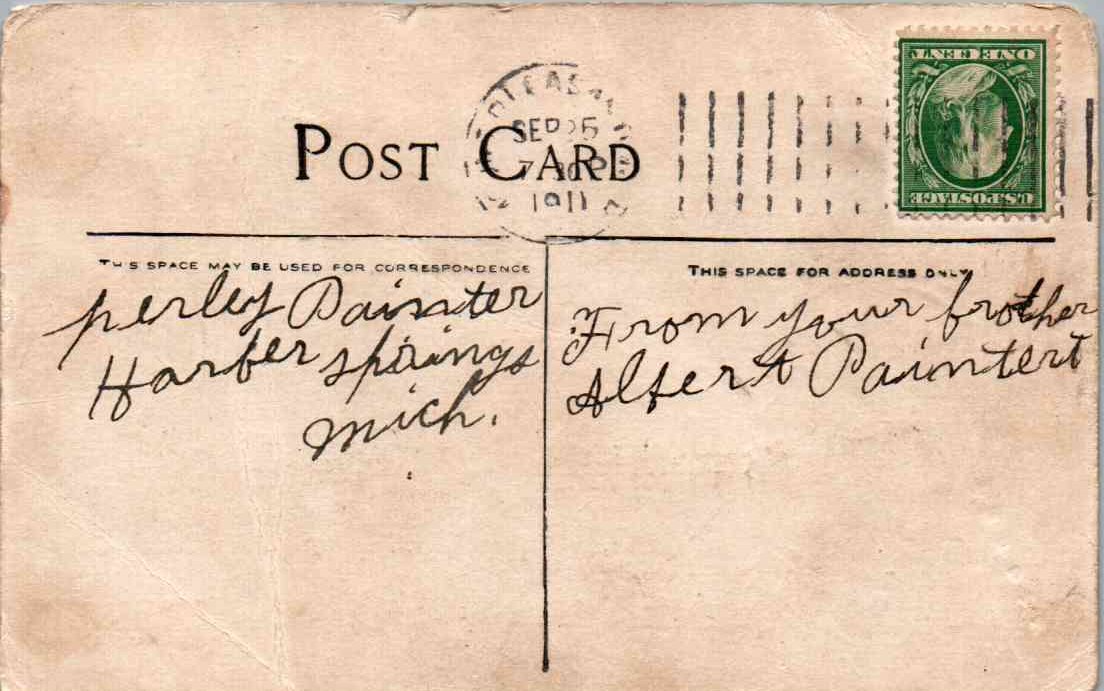 POST CARD
PLEASA
SEP 25
1911
ONE CENT
U.S. POSTAGE
THIS SPACE MAY BE USED FOR CORRESPONDENCE
perley Painter
Harber springs
mich.
THIS SPACE FOR ADDRESS ONLY
From your brother
Alfert Paintert